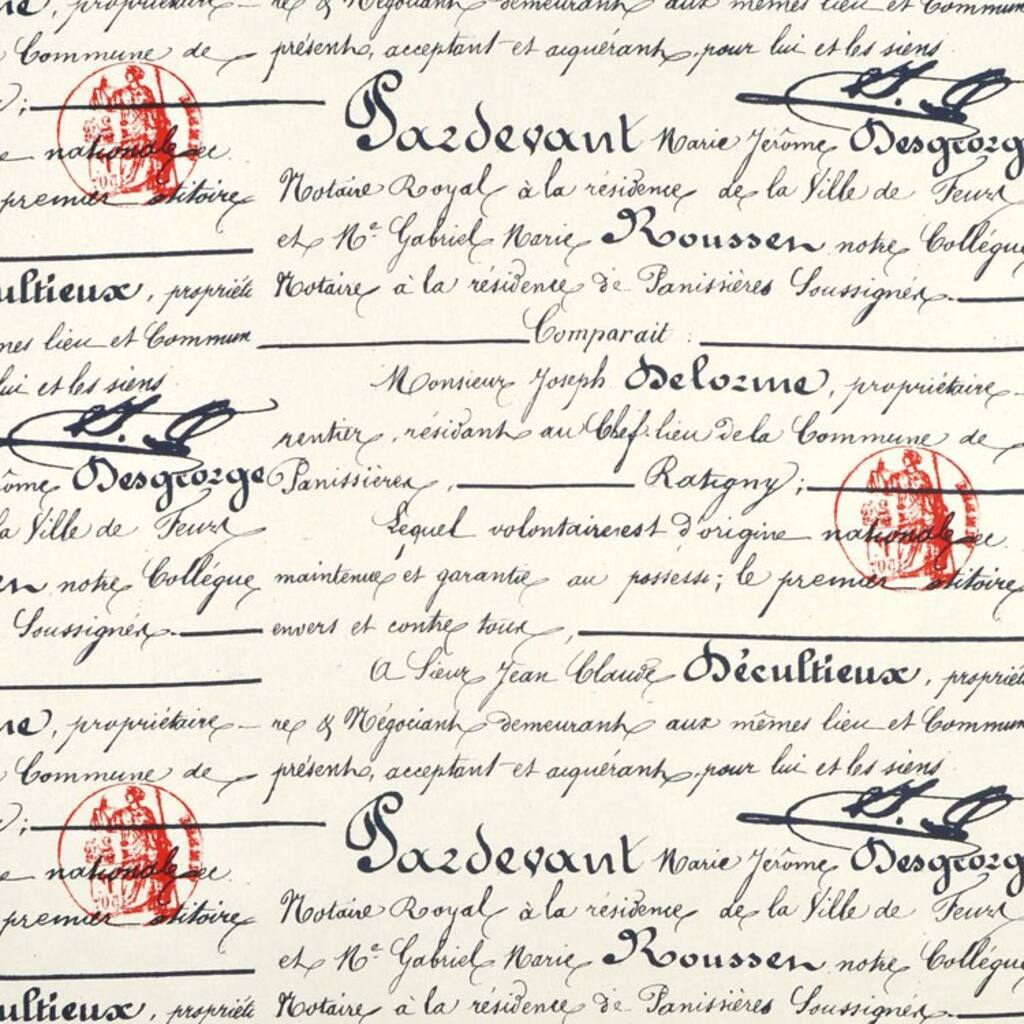 ne, propriétaire re & Négociant demeurant aux mêmes lieu et Commun
Commune de présent, acceptant et aiquérant pour lui et les siens
;
Pardevant Marie Jérôme Desgeorg
nationale ec
premier Notaire Royal à la résidence de la Ville de Feurs
et Me Gabriel Marie Roussen notre Collégue
ultieux, propriété Notaire à la résidence de Panissières Soussignés
mes lieu et Commun Comparait :
lui et les siens Monsieur Joseph Delorme, propriétaire
rentier, résidant au Chef-lieu de la Commune de
ôme Desgeorge Panissières, Ratigny;
la Ville de Feurs Lequel volontairerest d'origine nationale ec
en notre Collégue maintenue et garantie au possess; le premier
Soussignés envers et contre tous,
A Sieur Jean Claude Décultieux, propriété
ne, propriétaire re & Négociant demeurant aux mêmes lieu et Commun
Commune de présent, acceptant et aiquérant pour lui et les siens
;
Pardevant Marie Jérôme Desgeorg
nationale ec
premier Notaire Royal à la résidence de la Ville de Feurs
et Me Gabriel Marie Roussen notre Collégue
ultieux, propriété Notaire à la résidence de Panissières Soussignés